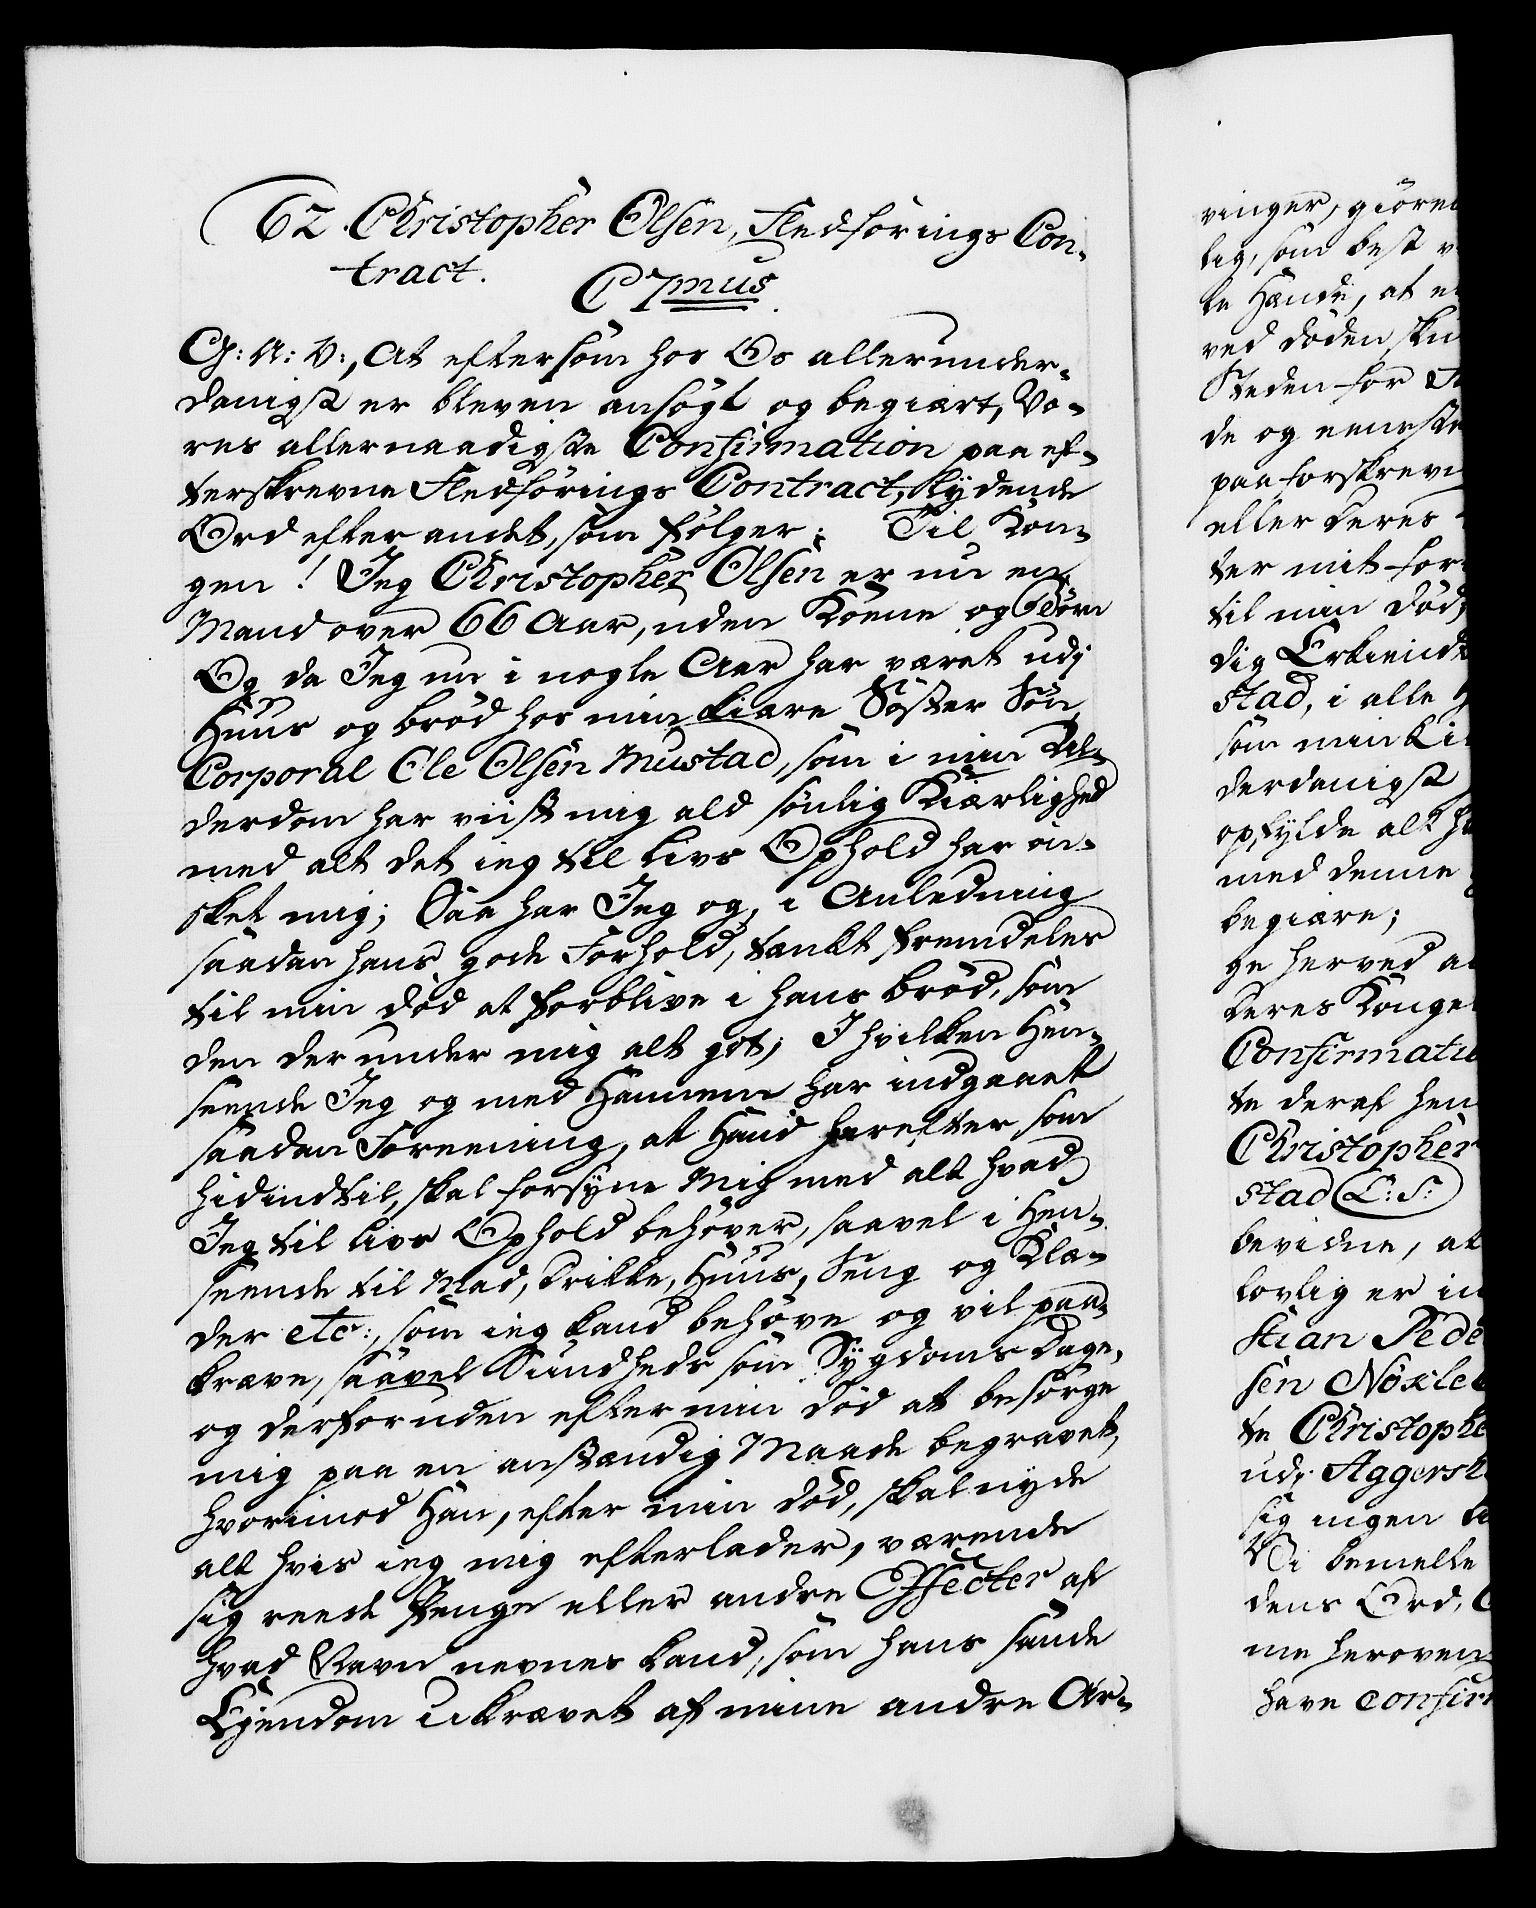 62. Christopher Olsen, Fledførings Con-
tract.
C7mus.
G: A: V:, At eftersom hos Os allerunder-
danigst er bleven ansøgt og begiært, Vo-
res allernaadigste Confirmation paa ef-
terskrevne Fledførings Contract, lydende
Ord efter andet, som følger: Til Kon-
gen! Jeg Christopher Olsen er nu en
Mand over 66 Aar, uden Kone og Børn
Og da Jeg nu i nogle Aar har været udj
Huus og brød hos min kiære Søster Søn,
Corporal Ole Olsen Mustad, som i min Al-
derdom har viist mig ald sønlig Kiærlighed
med alt det ieg til livs Ophold har øn-
sket mig; Saa har Jeg og, i Anledning
saadan hans gode Forhold, tænkt fremdeles
til min død at forblive i hans brød, som
den der under mig alt got; I hvilken Hen-
seende Jeg og med Hannem har indgaaet
saadan Foreening, at Hand herefter som
hidindtil, skal forsyne Mig med alt hvad
Jeg til livs Ophold behøver, saavel i Hen-
seende til Mad, Drikke, Huus, Seng og Klæ-
der etc:, som ieg kand behøve og vil paa-
kræve, saavel Sundheds som Sygdoms Dage,
og derforuden efter min død at besørge
mig paa en anstændig Maade begravet,
hvorimod Han, efter min død, skal nyde
alt hvis ieg mig efterlader, værende
sig reede Penge eller andre Effecter af
hvad Navn nevnes kand, som hans sande
Ejendom ukrævet af mine andre Ar-
vinger, giøre
lig, som best
te Hænde, at
ved døden
Steden for
de og eeneste
paa forskrevn
eller deres
ter mit for
til min død,
dig Erkiend
stad, i alle
som min
derdanigst
opfylde alt
med denne
begiære;
ge herved
Deres Konge
Confirmatio
te deraf hen
Christopher
stad (L: S:)
bevidne, at
lovlig er in
stian Pede
sen Nøxle
te Christophe
udj Aggersh
sig ingen
Vi bemelte
dens Ord,
me heroven
have confir